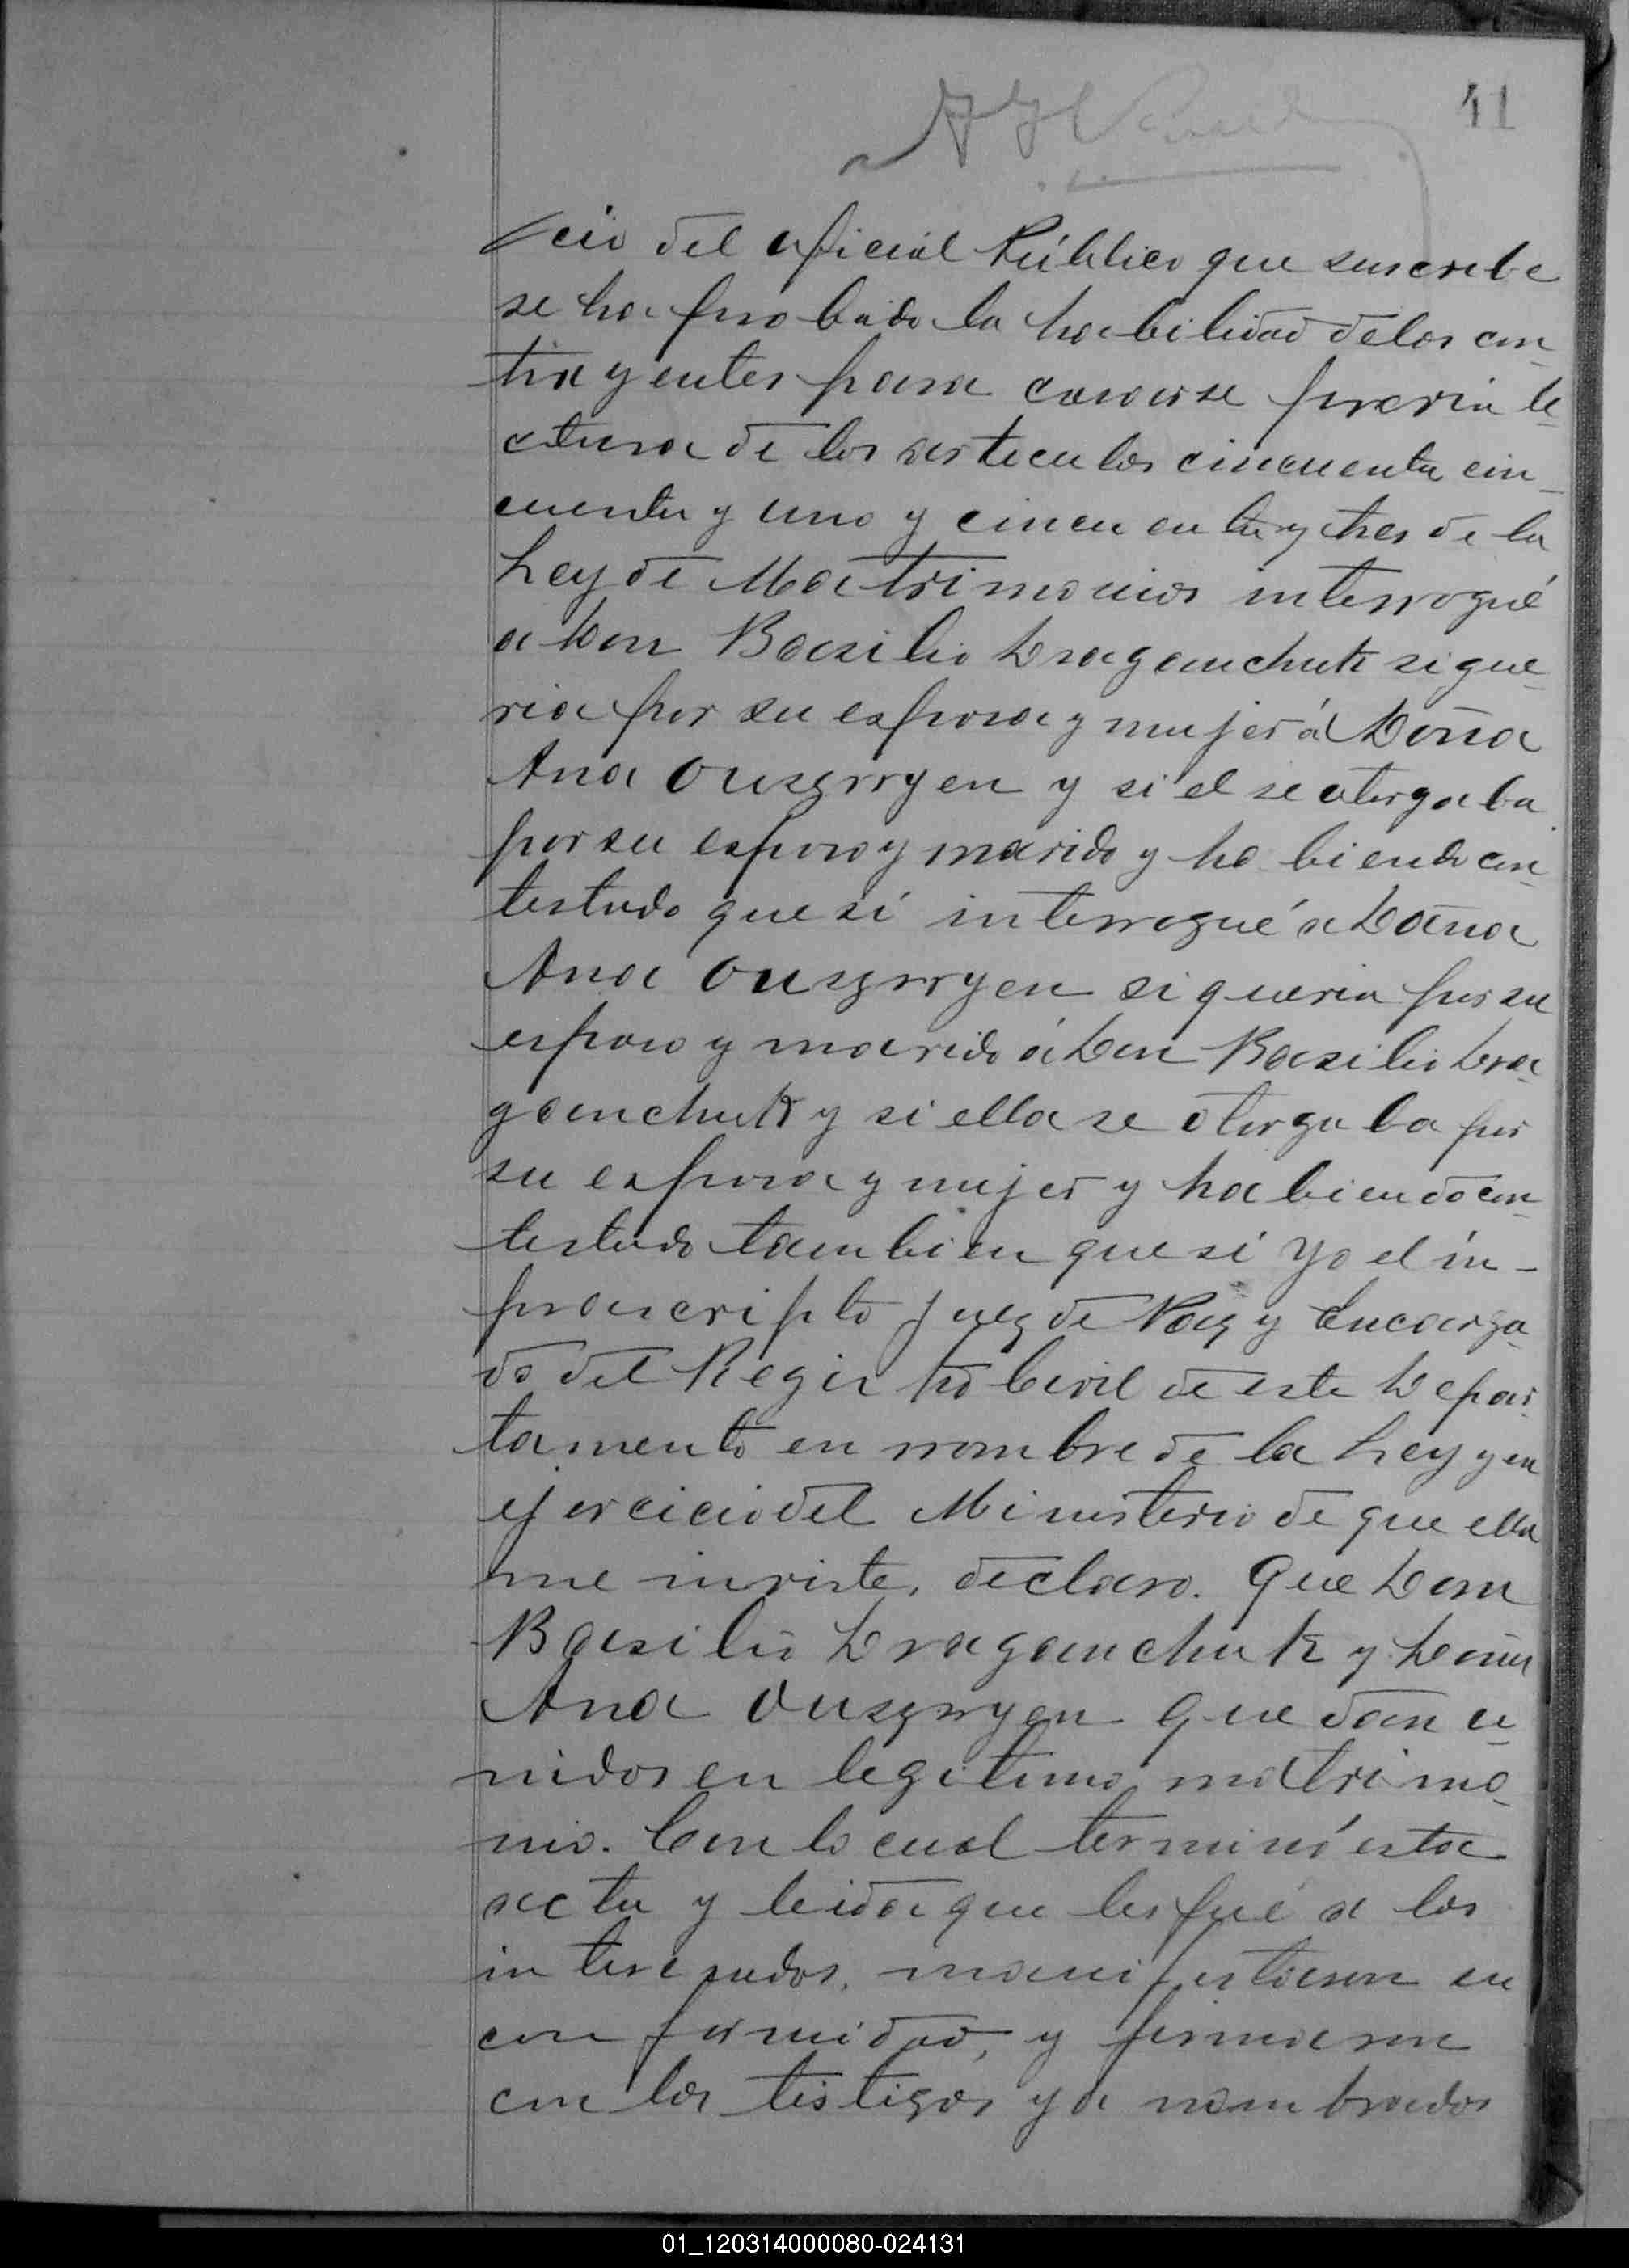 41
cio del oficial Público que suscribe
se ha probado la habilidad de los con_
trayentes para casarse previa le_
ctura de los articulos cincuenta cin_
cuenta y uno y cincuenta y tres de la
Ley de Matrimonios interrogué
a Don Basilio Draganchuk si que_
ria por su esposa y mujer á Doña
Ana Ouszrryen y si el se otorgaba
por su esposo y marido y habiendo con_
testado que sí interrogué a Doña
Ana Ouszrryen si queria por su
esposo y marido á Don Basilio Dra_
ganchuk y si ella se otorgaba por
su esposa y mujer y habiendo con_
testado tambien que sí Yo el in_
frascripto Juez de Paz y Encarga_
do del Registro Civil de este Depar_
tamento en nombre de la Ley y en
ejercicio del Ministerio de que ella
me inviste, declaro. Que Don
Basilio Draganchuk y Doña
Ana Ouszrryen quedan u_
nidos en legitimo matrimo_
nio. Con lo cual terminó esta
acta y leida que les fué a los
interesados, manifestaron su
conformidad, y firmaron
con los testigos ya nombrados
01_120314000080-024131